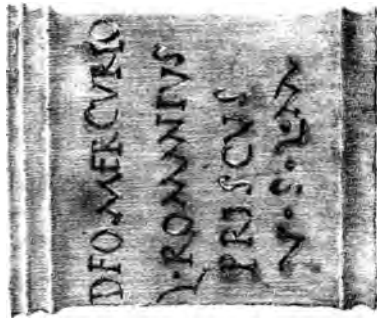 DEO·MERCVRIO
L·ROMANIVS
PRISCVS
V·S·L·M